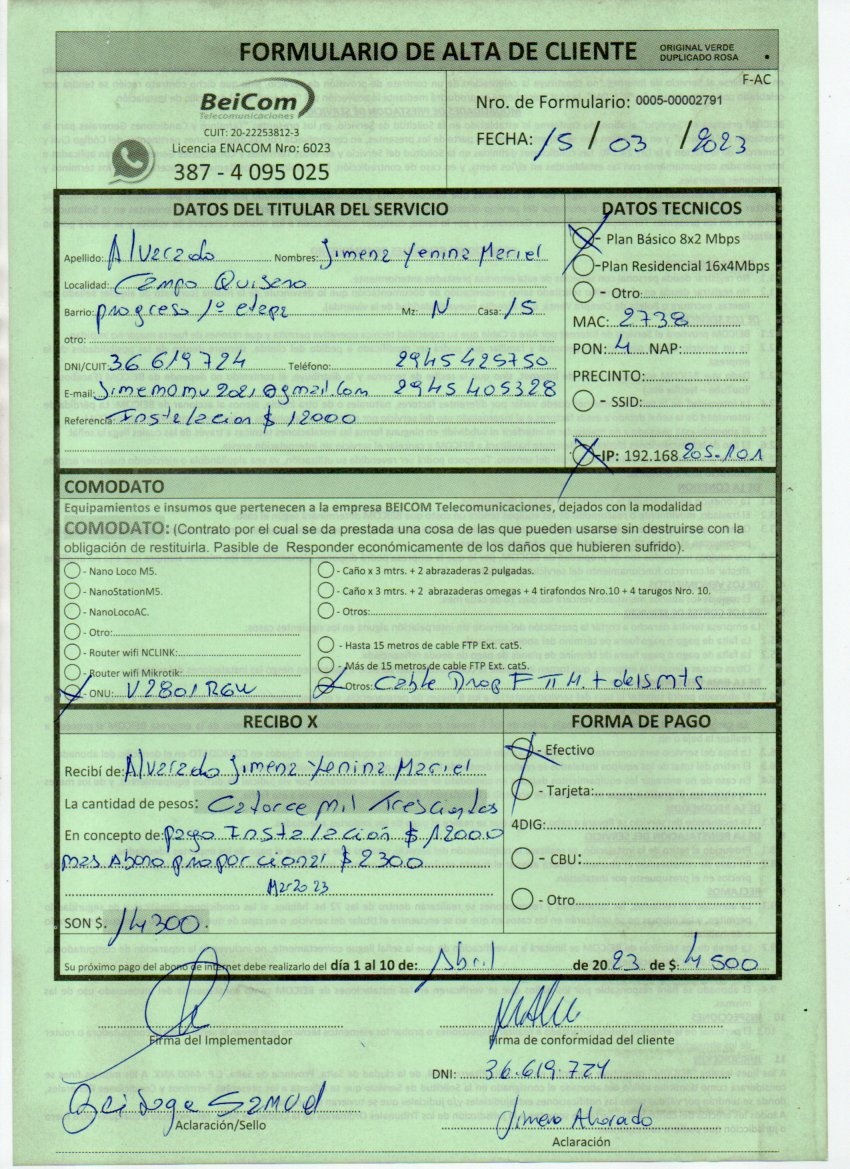 FORMULARIO DE ALTA DE CLIENTE ORIGINAL VERDE
DUPLICADO ROSA
F-AC
BeiCom
Telecomunicaciones
CUIT: 20-22253812-3
Licencia ENACOM Nro: 6023
387 - 4 095 025
Nro. de Formulario: 0005-00002791
FECHA: 15 / 03 / 2023
DATOS DEL TITULAR DEL SERVICIO
Apellido: Alvarado Nombres: Jimena Yenina Mariel
Localidad: Campo Quijano
Barrio: progreso 1º etapa Mz: N Casa: 15
otro:
DNI/CUIT: 36 619 724 Teléfono: 2945425750
E-mail: Jimemomu2021@gmail.com 2945405328
Referencia: Instalacion $ 12000
DATOS TECNICOS
- Plan Básico 8x2 Mbps
- Plan Residencial 16x4Mbps
- Otro:
MAC: 2738
PON: 4 NAP:
PRECINTO:
- SSID:
- IP: 192.168.205.101
COMODATO
Equipamientos e insumos que pertenecen a la empresa BEICOM Telecomunicaciones, dejados con la modalidad
COMODATO: (Contrato por el cual se da prestada una cosa de las que pueden usarse sin destruirse con la
obligación de restituirla. Pasible de Responder económicamente de los daños que hubieren sufrido).
- Nano Loco M5.
- NanoStationM5.
- NanoLocoAC.
- Otro:
- Router wifi NCLINK:
- Router wifi Mikrotik:
- ONU: V2801RGW
- Caño x 3 mtrs. + 2 abrazaderas 2 pulgadas.
- Caño x 3 mtrs. + 2 abrazaderas omegas + 4 tirafondos Nro.10 + 4 tarugos Nro. 10.
- Otros:
- Hasta 15 metros de cable FTP Ext. cat5.
- Más de 15 metros de cable FTP Ext. cat5.
Otros: Cable Drop FTTH. + de 15 mts
RECIBO X
Recibí de: Alvarado Jimena Yenina Mariel
La cantidad de pesos: Catorce mil Trescientos
En concepto de: pago Instalación $ 12000
mas Abono proporcional $ 2300
Marzo 23
SON $. 14300.
FORMA DE PAGO
- Efectivo
- Tarjeta:
4DIG:
- CBU:
- Otro
Su próximo pago del abono de internet debe realizarlo del día 1 al 10 de: Abril de 2023 de $: 4500
Firma del Implementador
Firma de conformidad del cliente
DNI: 36.619.724
Samuel
Aclaración/Sello
Jimena Alvarado
Aclaración